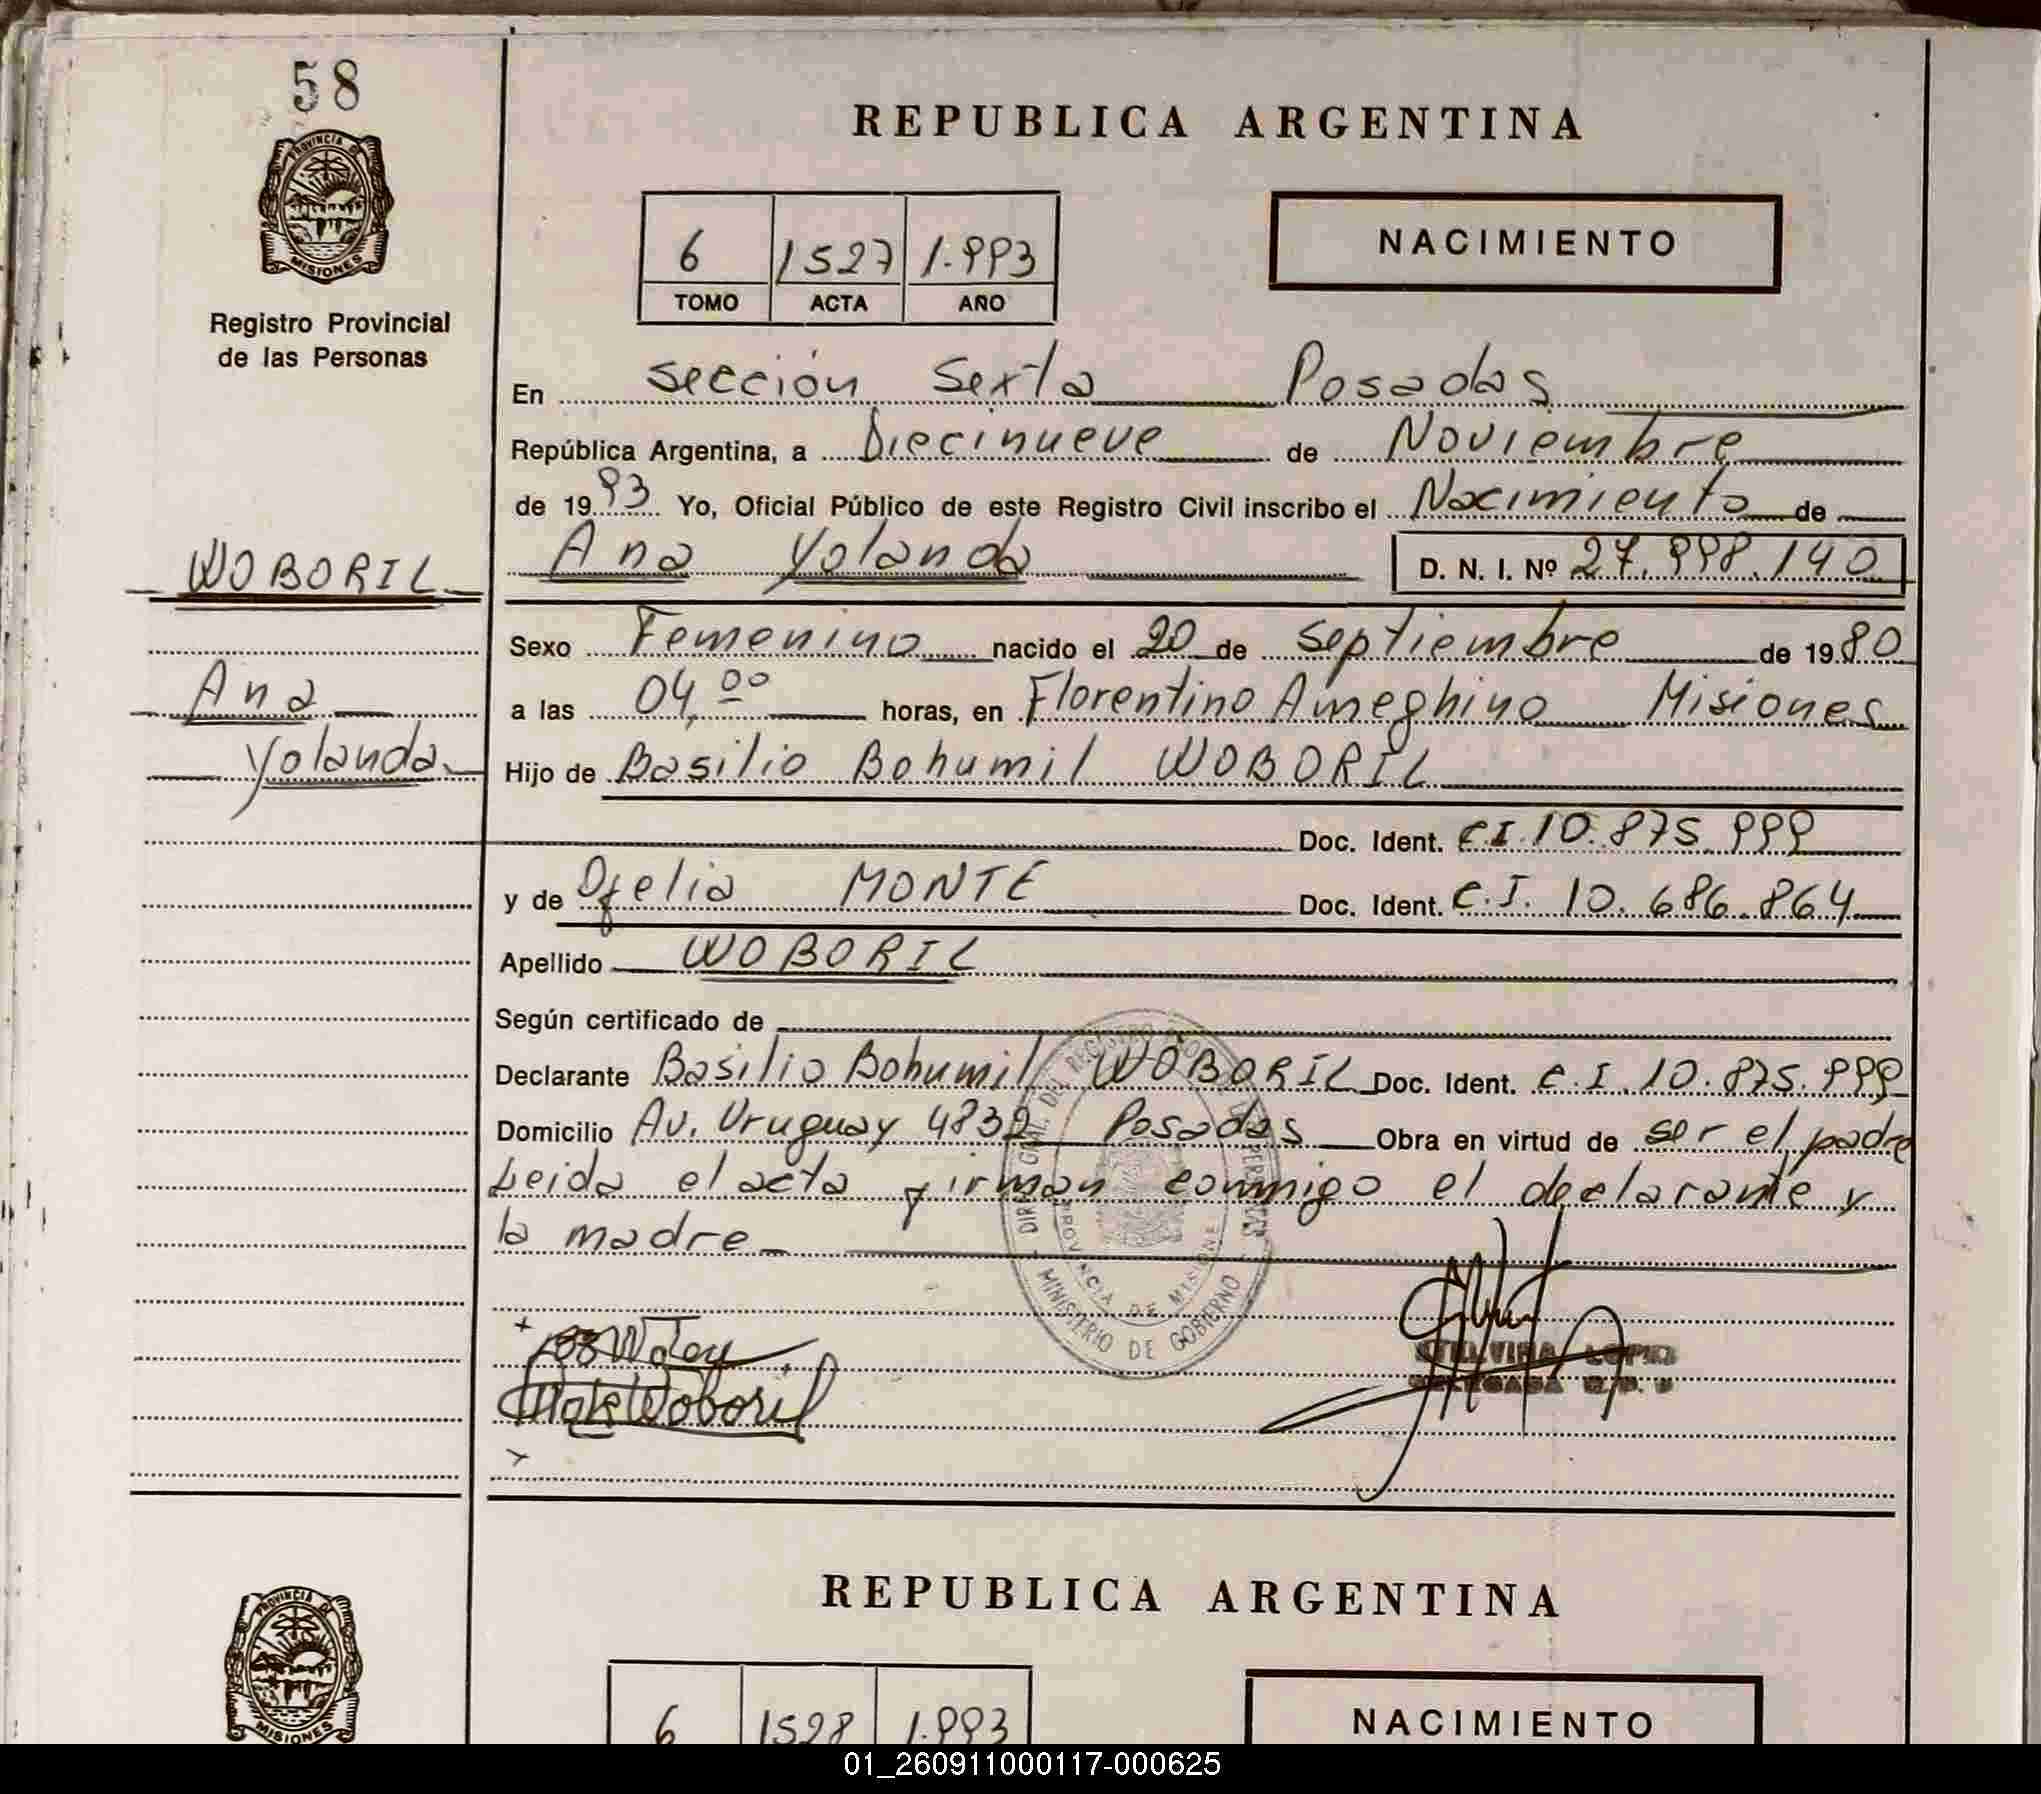 58
PROVINCIA DE
MISIONES
Registro Provincial
de las Personas
REPUBLICA ARGENTINA
6 1527 1.993
TOMO ACTA AÑO
NACIMIENTO
En sección Sexta Posadas
República Argentina, a Diecinueve de Noviembre
de 1993 Yo, Oficial Público de este Registro Civil inscribo el Nacimiento de
Ana Yolanda D. N. I. Nº 27.998.140
WOBORIL
Ana
Yolanda
Sexo Femenino nacido el 20 de Septiembre de 1980
a las 04,00 horas, en Florentino Ameghino Misiones
Hijo de Basilio Bohumil WOBORIL
Doc. Ident. C.I. 10.875.999
y de Ofelia MONTE Doc. Ident. C.I. 10.686.864
Apellido WOBORIL
Según certificado de
Declarante Basilio Bohumil WOBORIL Doc. Ident. C.I. 10.875.999
Domicilio Av. Uruguay 4832 Posadas Obra en virtud de ser el padre
Leida el acta firman conmigo el declarante y
la madre
MINISTERIO DE GOBIERNO
PROVINCIA DE MISIONES
Woboril
LOPEZ
REPUBLICA ARGENTINA
PROVINCIA DE
MISIONES
6 1528 1.993
NACIMIENTO
01_260911000117-000625